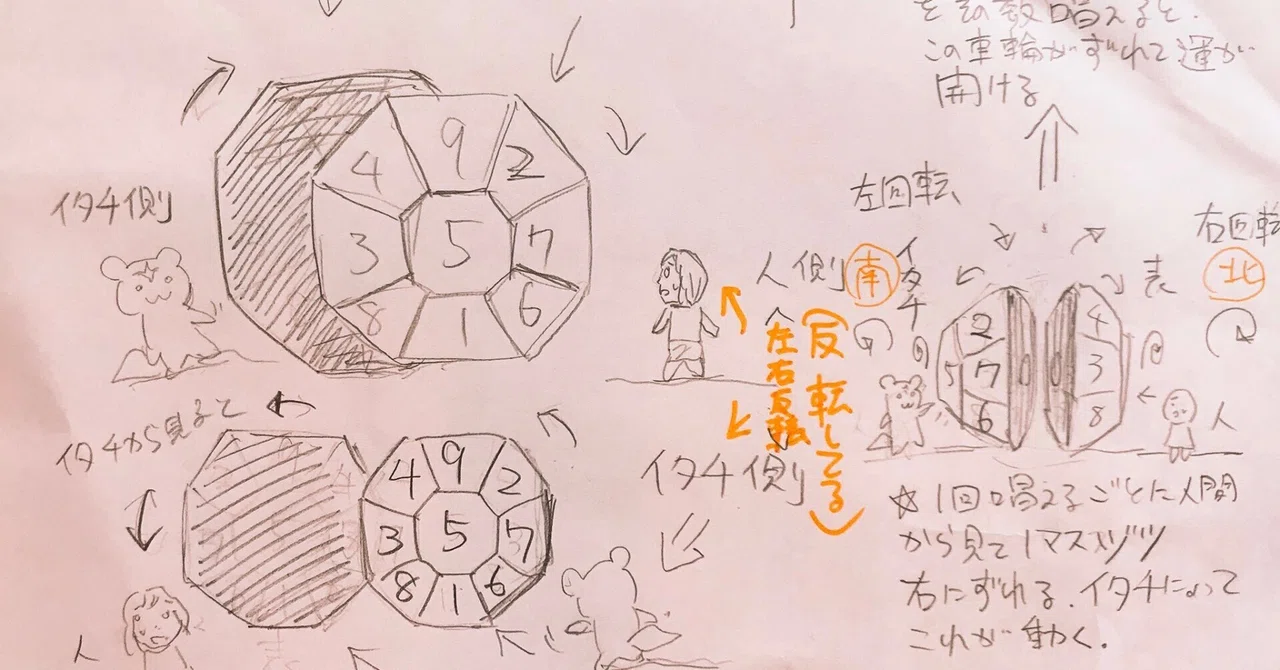 をその数唱えると.
この車輪がずれて運が
開ける
イタチ側
4 9 2
3 5 7
8 1 6
人側
(反転してる)
左右反転
イタチから見ると
4 9 2
3 5 7
8 1 6
人
イタチ側
左回転
南
イタチ
右回転
北
表
2
5 7
6
0
0
4
3
8
人
☆1回唱えるごとに人間
から見て1マスズツ
右にずれる.イタチによって
これが動く.